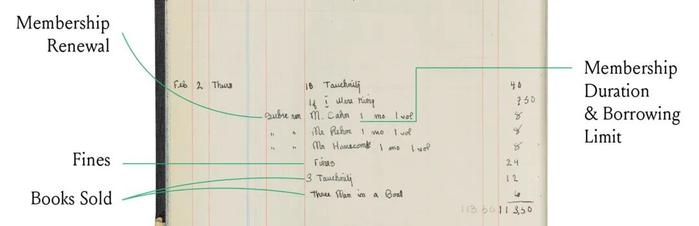 Membership
Renewal
Feb 2 Thurs 18 Tauchnitz 40
If I Were King 7 50
Subre ren M. Cahn 1 mo 1 vol 8
" " Mr 1 mo 1 vol 8
" " Mr 1 mo 1 vol 8
Fines 24
3 Tauchnitz 12
Three Men in a Boat 6
113.50 11 3,50
Membership
Duration
& Borrowing
Limit
Fines
Books Sold